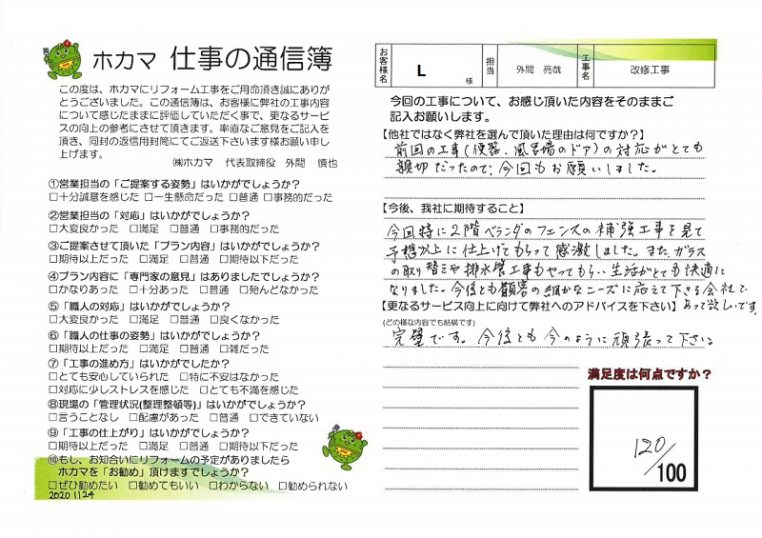 ホカマ 仕事の通信簿
この度は、ホカマにリフォーム工事をご用命頂き誠にありが
とうございました。この通信簿は、お客様に弊社の工事内容
について感じたままに評価していただく事で、更なるサービ
スの向上の参考にさせて頂きます。率直なご意見をご記入を
頂き、同封の返信用封筒にてご返送下さいます様お願い申し
上げます。
㈱ホカマ 代表取締役 外間 慎也
①営業担当の「ご提案する姿勢」はいかがでしょうか?
□十分誠意を感じた □一生懸命だった □普通 □事務的だった
②営業担当の「対応」はいかがでしょうか?
□大変良かった □満足 □普通 □事務的だった
③ご提案させて頂いた「プラン内容」はいかがでしょうか?
□期待以上だった □満足 □普通 □期待以下だった
④プラン内容に「専門家の意見」はありましたでしょうか?
□かなりあった □十分あった □普通 □殆んどなかった
⑤「職人の対応」はいかがでしょうか?
□大変良かった □満足 □普通 □良くなかった
⑥「職人の仕事の姿勢」はいかがでしょうか?
□期待以上だった □満足 □普通 □雑だった
⑦「工事の進め方」はいかがでしたか?
□とても安心していられた □特に不安はなかった
□対応に少しストレスを感じた □とても不満を感じた
⑧現場の「管理状況(整理整頓等)」はいかがでしょうか?
□言うことなし □配慮があった □普通 □できていない
⑨「工事の仕上がり」はいかがでしょうか?
□期待以上だった □満足 □普通 □期待以下だった
⑩もし、お知合いにリフォームの予定がありましたら
ホカマを「お勧め」頂けますでしょうか?
□ぜひ勧めたい □勧めてもいい □わからない □勧められない
2020 11 24
お客様名 L 様 担当 外間 亮哉 工事名 改修工事
今回の工事について、お感じ頂いた内容をそのままご
記入お願いします。
【他社ではなく弊社を選んで頂いた理由は何ですか?】
前回の工事(便器、風呂場のドア)の対応がとても
親切だったので、今回もお願いしました。
【今後、我社に期待すること】
今回特に2階ベランダのフェンスの補強工事を見て
予想以上に仕上げてもらって感激しました。また、ガラス
の取り替えや排水管工事もやってもらい生活がとても快適に
なりました。今後とも顧客の細かなニーズに応えて下さる会社で
あって欲しいです。
【更なるサービス向上に向けて弊社へのアドバイスを下さい】
(どの様な内容でも結構です)
完璧です。今後とも今のように頑張って下さい
満足度は何点ですか?
120/100